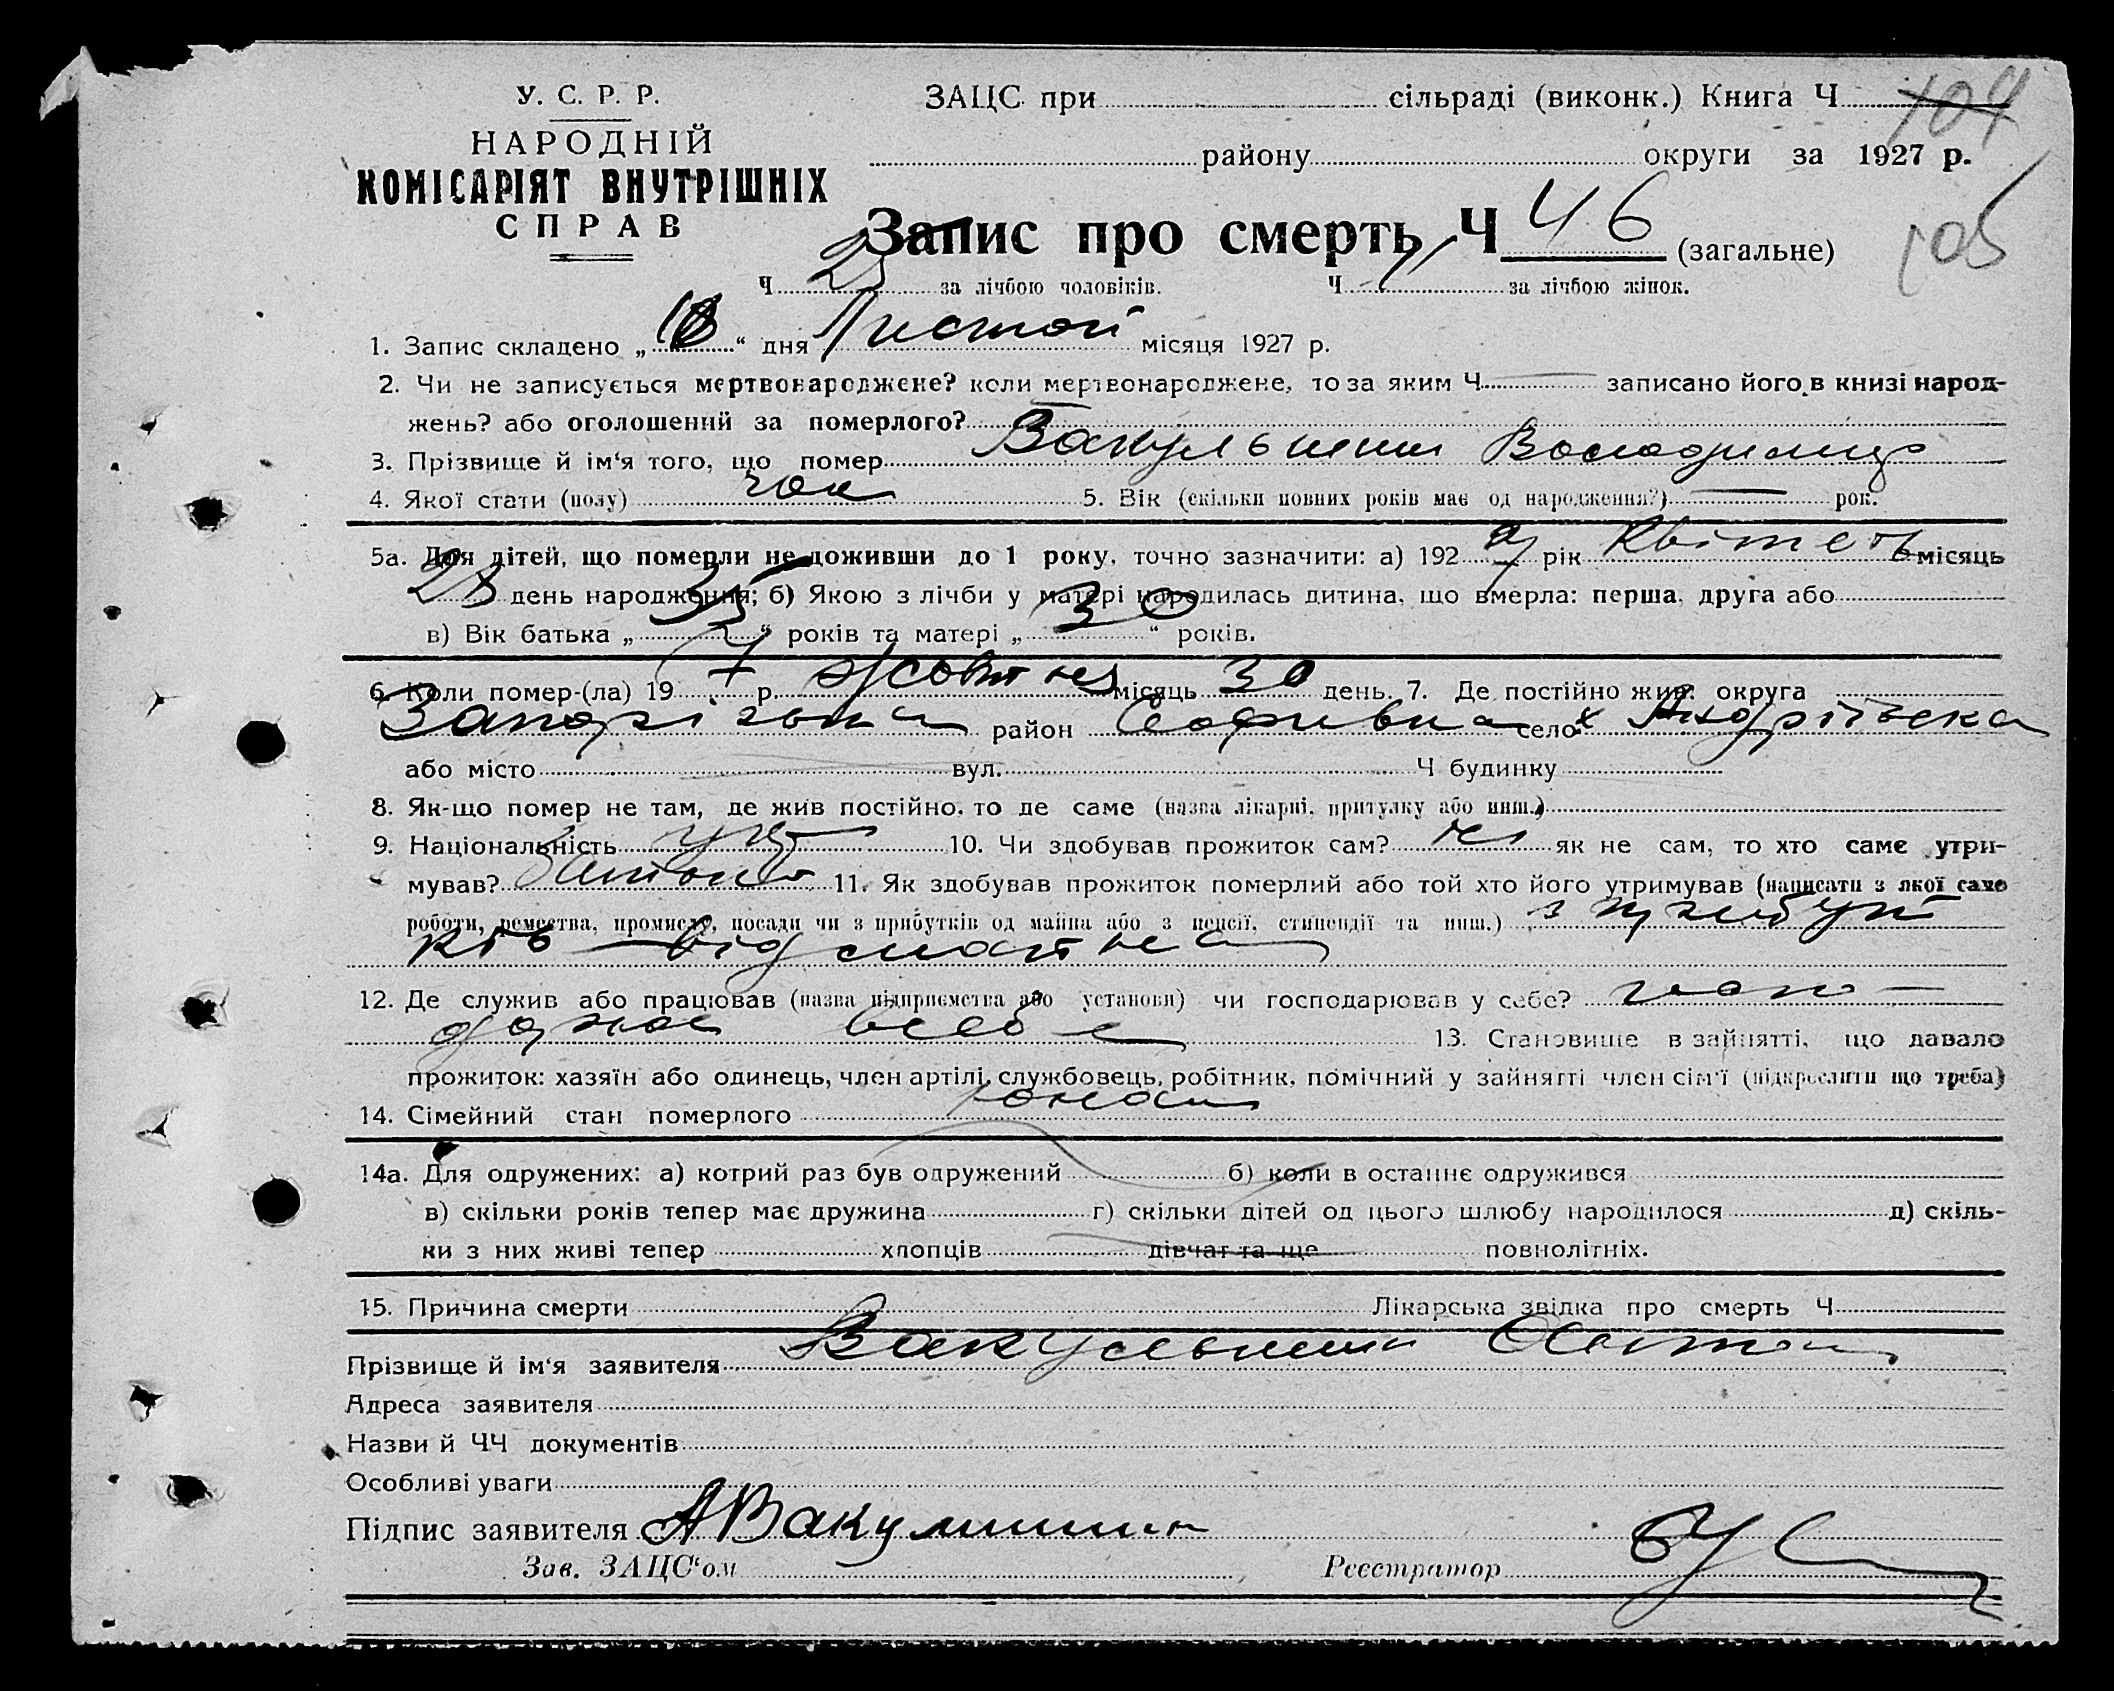 У. С. Р. Р.
НАРОДНІЙ
КОМІСАРІЯТ ВНУТРІШНІХ
СПРАВ
ЗАЦС при сільраді (виконк.) Книга Ч 104
району округи за 1927 р.
105
Запис про смерть Ч 46 (загальне)
Ч 25 за лічбою чоловіків. Ч за лічбою жінок.
1. Запис складено „ “ дня Листоп місяця 1927 р.
2. Чи не записується мертвонароджене? коли мертвонароджене, то за яким Ч — записано його в книзі народ-
жень? або оголошений за померлого? —
3. Прізвище й ім‘я того, що помер Вакульшин Володимир
4. Якої стати (полу) чол 5. Вік (скільки повних років має од народження?) — рок.
5а. Для дітей, що померли не доживши до 1 року, точно зазначити: а) 1927 рік Квітень місяць
28 день народження; б) Якою з лічби у матері народилась дитина, що вмерла: перша, друга або
в) Вік батька „ 35 “ років та матері „ 30 “ років.
6. Коли помер-(ла) 197 р. жовтня місяць 30 день. 7. Де постійно жив: округа
Запорізька район Софивка село х Андріївка
або місто вул. Ч будинку
8. Як-що помер не там, де жив постійно, то де саме (назва лікарні, притулку або инш.)
9. Національність укр 10. Чи здобував прожиток сам? ні як не сам, то хто саме утри-
мував? батько 11. Як здобував прожиток померлий або той хто його утримував (написати з якої саме
роботи, ремества, промислу, посади чи з прибутків од майна або з пенсії, стипендії та инш.) з прибут
ків від
12. Де служив або працював (назва підприємства або установи) чи господарював у себе? госпо-
дарює в себе 13. Становище в зайнятті, що давало
прожиток: хазяїн або одинець, член артілі, службовець, робітник, помічний у зайнятті член сім‘ї (підкреслити що треба)
14. Сімейний стан померлого
14а. Для одружених: а) котрий раз був одружений б) коли в останнє одружився
в) скільки років тепер має дружина г) скільки дітей од цього шлюбу народилося д) скіль-
ки з них живі тепер хлопців дівчат та ще повнолітніх.
15. Причина смерти Лікарська звідка про смерть Ч
Прізвище й ім‘я заявителя Вакульшин Антон
Адреса заявителя
Назви й ЧЧ документів
Особливі уваги
Підпис заявителя АВакульшин
Зав. ЗАЦС‘ом Реєстратор